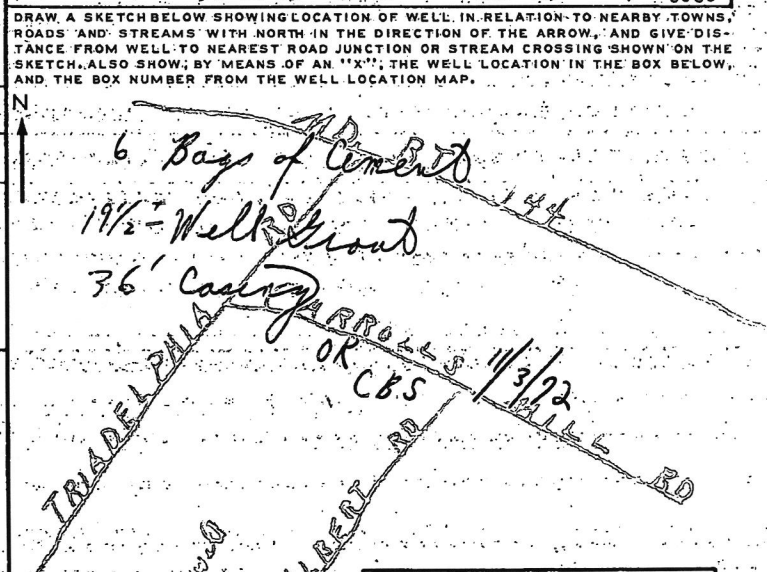 DRAW A SKETCH BELOW SHOWING LOCATION OF WELL IN RELATION TO NEARBY TOWNS,
ROADS AND STREAMS WITH NORTH IN THE DIRECTION OF THE ARROW, AND GIVE DIS-
TANCE FROM WELL TO NEAREST ROAD JUNCTION OR STREAM CROSSING SHOWN ON THE
SKETCH. ALSO SHOW, BY MEANS OF AN "X", THE WELL LOCATION IN THE BOX BELOW,
AND THE BOX NUMBER FROM THE WELL LOCATION MAP.
N
MD. RT 144
6 Bags of Cement
19 1/2' - Well Grout
36' Casing
TRIADELPHIA RD
CARROLLS HILL RD
OK
CBS 11/3/72
LBERT RD